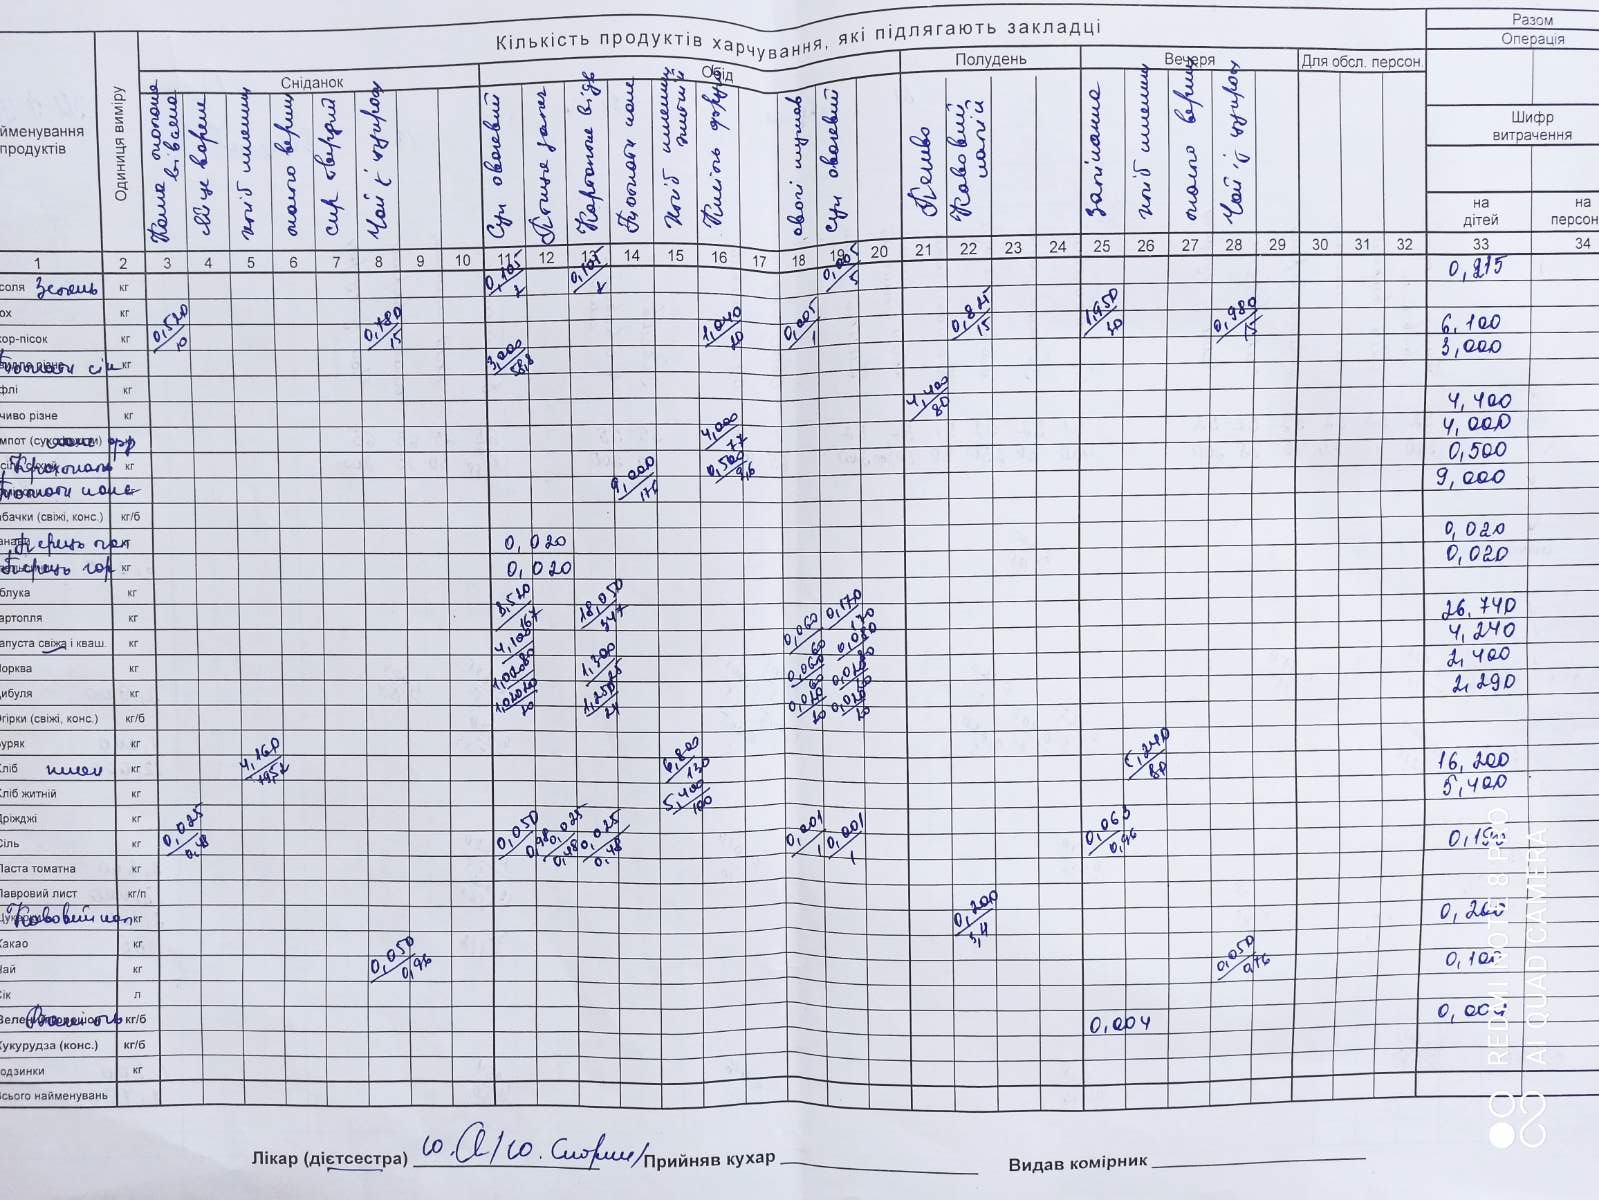 Кількість продуктів харчування, які підлягають закладці
Разом
Операція
йменування продуктів
Одиниця виміру
Сніданок
Обід
Полудень
Вечеря
Для обсл. персон.
Шифр витрачення
на дітей
на персон
Каша молочна вівсяна
Яйце варене
хліб пшеничн
масло верш
сир твердий
Чай з цукром
Суп овочевий
Птиця запеч
Картопля відв
Томати конс
Хліб пшениц житній
овочі тушков
суп овочевий
Печиво
Кавовий напій
Запіканка
хліб пшениц
масло верш
Чай із цукром
1 2 3 4 5 6 7 8 9 10 11 12 13 14 15 16 17 18 19 20 21 22 23 24 25 26 27 28 29 30 31 32 33 34
соля Зелень кг 0,105/2 0,105/2 0,005/5 0,215
ох кг
кор-пісок кг 0,520/10 0,780/15 1,040/20 0,005/1 0,825/15 1,950/30 0,980/15 6,100
Томати сік кг 3,000/58,8 3,000
флі кг
чиво різне кг 4,400/80 4,400
мпот (сухофрукти) кг 4,000/77 4,000
Крохмаль кг 0,500/9,6 0,500
Томати конс кг 9,000/176 9,000
бачки (свіжі, конс.) кг/б
Перець кг 0,020 0,020
Перець гор кг 0,020 0,020
блука кг
артопля кг 8,520/167 18,050/347 0,060/60 0,170/170 26,740
апуста свіжа і кваш. кг 4,100/80 0,080/80 4,240
Морква кг 1,300/25 2,400
ибуля кг 1,020/20 1,250/24 0,020/20 0,020/20 2,290
гірки (свіжі, конс.) кг/б
Буряк кг
Хліб пшен кг 4,160 6,800/130 5,240/80 16,200
Хліб житній кг 5,400/100 5,400
Дріжджі кг
Сіль кг 0,025/0,48 0,050/0,98 0,025/0,48 0,025/0,48 0,001/1 0,001/1 0,063/0,96
Паста томатна кг
Лавровий лист кг/п
Кавовий нап кг 0,200/3,4
Какао кг
Чай кг 0,050/0,96 0,050/0,96 0,100
Сік л
Ваніль кг/б 0,004 0,004
Кукурудза (конс.) кг/б
одзинки кг
Всього найменувань
Лікар (дієтсестра)
Прийняв кухар
Видав комірник
REDMI NOTE 8 PRO
AI QUAD CAMERA